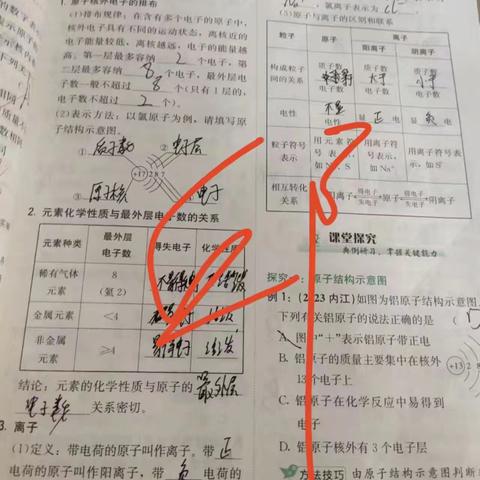 1. 原子核外电子的排布
(1)排布规律：在含有多个电子的原子中，
核外电子具有不同的运动状态，离核近的
电子能量较低，离核越远，电子的能量越
高。第一层最多容纳 2 个电子，第
二层最多容纳 8 个电子，最外层电
子数一般不超过 8 个(只有1层的，
电子数不超过 2 个)。
(2)表示方法：以氯原子为例，请填写原
子结构示意图。
① 质子数 ② 电子层
+17 2 8 7
原子核 电子
2. 元素化学性质与最外层电子数的关系
元素种类 最外层电子数 得失电子 化学性质
稀有气体元素 8(氦2)
金属元素 <4
非金属元素 ≥4
结论：元素的化学性质与原子的 最外层
电子数 关系密切。
3. 离子
(1)定义：带电荷的原子叫作离子。带 正
电荷的原子叫作阳离子，带 负 电荷的
氯离子表示为
(3)原子与离子的区别和联系
粒子 原子 离子
阳离子 阴离子
构成粒子间的关系 质子数 电子数 质子数 大于 电子数 质子数 小于 电子数
电性 不显 电性 显 正 电 显 负 电
粒子符号表示 用元素符号表示，如Na、S 用离子符号表示，如Na⁺ 用离子符号表示，如S
相互转化关系 阳离子 得电子 失电子 原子 得电子 失电子 阴离子
课堂探究
典例研习，掌握关键能力
探究一：原子结构示意图
例1：(2023内江)如图为铝原子结构示意图，
下列有关铝原子的说法正确的是
A. 图中“+”表示铝原子带正电
B. 铝原子的质量主要集中在核外
13个电子上
+13 2 8
C. 铝原子在化学反应中易得到
电子
D. 铝原子核外有3个电子层
方法技巧 由原子结构示意图判断